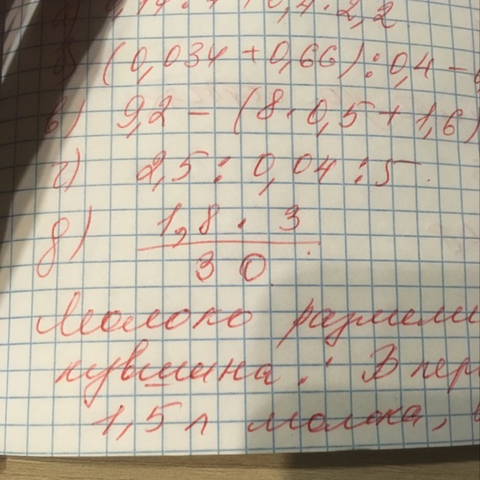 : 4 + 0,4 · 2,2
(0,034 + 0,66) : 0,4 -
в) 9,2 - (8 · 0,5 + 1,6)
г) 2,5 : 0,04 : 5
д) 1,8 · 3
30
Молоко разлили
кувшина. В пер
1,5 л молока,